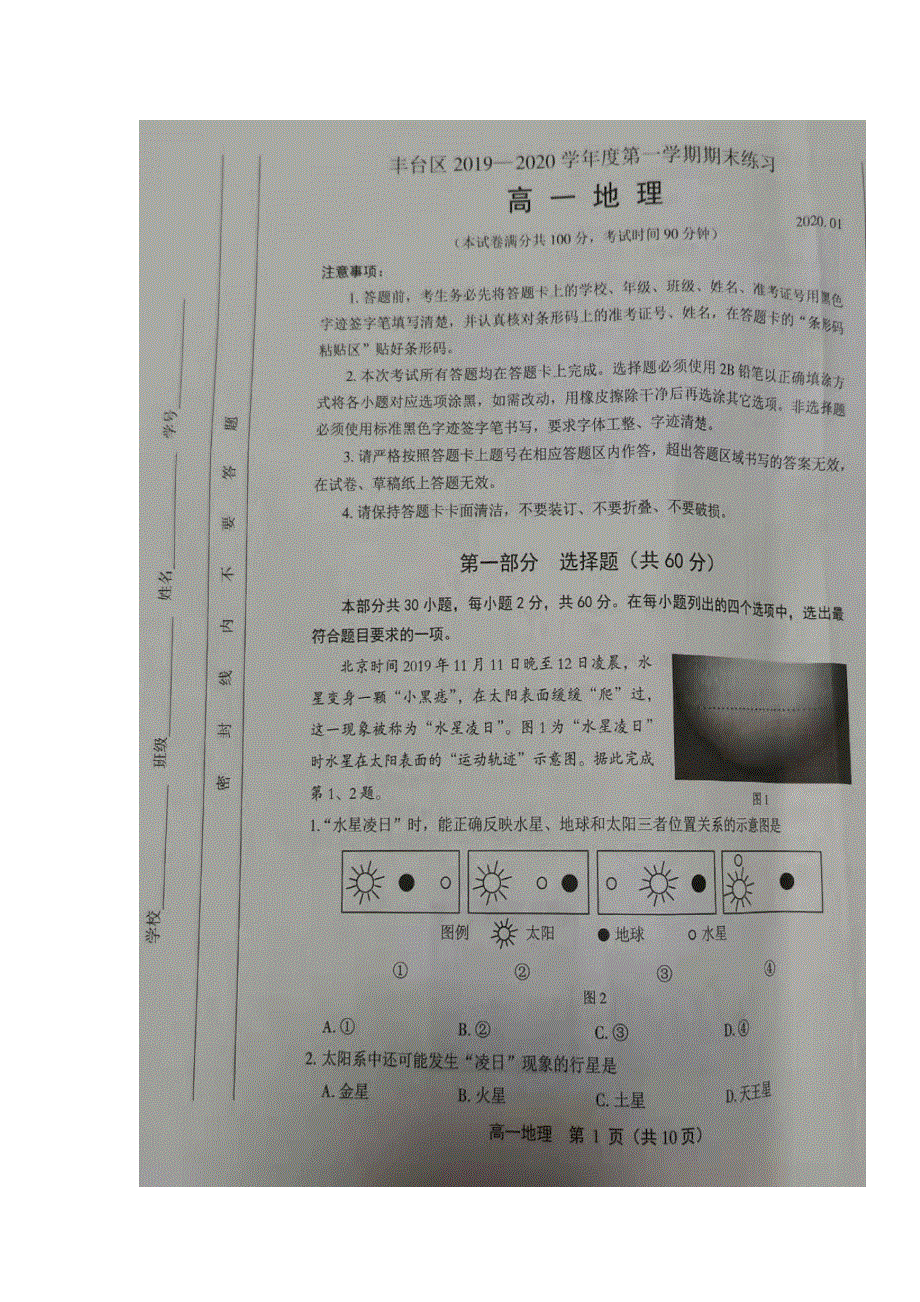 丰台区2019—2020学年度第一学期期末练习
高一地理
2020.01
（本试卷满分共100分，考试时间90分钟）
注意事项：
1.答题前，考生务必先将答题卡上的学校、年级、班级、姓名、准考证号用黑色
字迹签字笔填写清楚，并认真核对条形码上的准考证号、姓名，在答题卡的“条形码
粘贴区”贴好条形码。
2.本次考试所有答题均在答题卡上完成。选择题必须使用2B铅笔以正确填涂方
式将各小题对应选项涂黑，如需改动，用橡皮擦除干净后再选涂其它选项。非选择题
必须使用标准黑色字迹签字笔书写，要求字体工整、字迹清楚。
3.请严格按照答题卡上题号在相应答题区内作答，超出答题区域书写的答案无效，
在试卷、草稿纸上答题无效。
4.请保持答题卡卡面清洁，不要装订、不要折叠、不要破损。
第一部分 选择题（共60分）
本部分共30小题，每小题2分，共60分。在每小题列出的四个选项中，选出最
符合题目要求的一项。
北京时间2019年11月11日晚至12日凌晨，水
星变身一颗“小黑痣”，在太阳表面缓缓“爬”过，
这一现象被称为“水星凌日”。图1为“水星凌日”
时水星在太阳表面的“运动轨迹”示意图。据此完成
第1、2题。
图1
1.“水星凌日”时，能正确反映水星、地球和太阳三者位置关系的示意图是
图例 太阳 地球 水星
① ② ③ ④
图2
A.① B.② C.③ D.④
2.太阳系中还可能发生“凌日”现象的行星是
A.金星 B.火星 C.土星 D.天王星
高一地理 第 1 页（共10页）
学校 班级 姓名 学号
密封线内不要答题